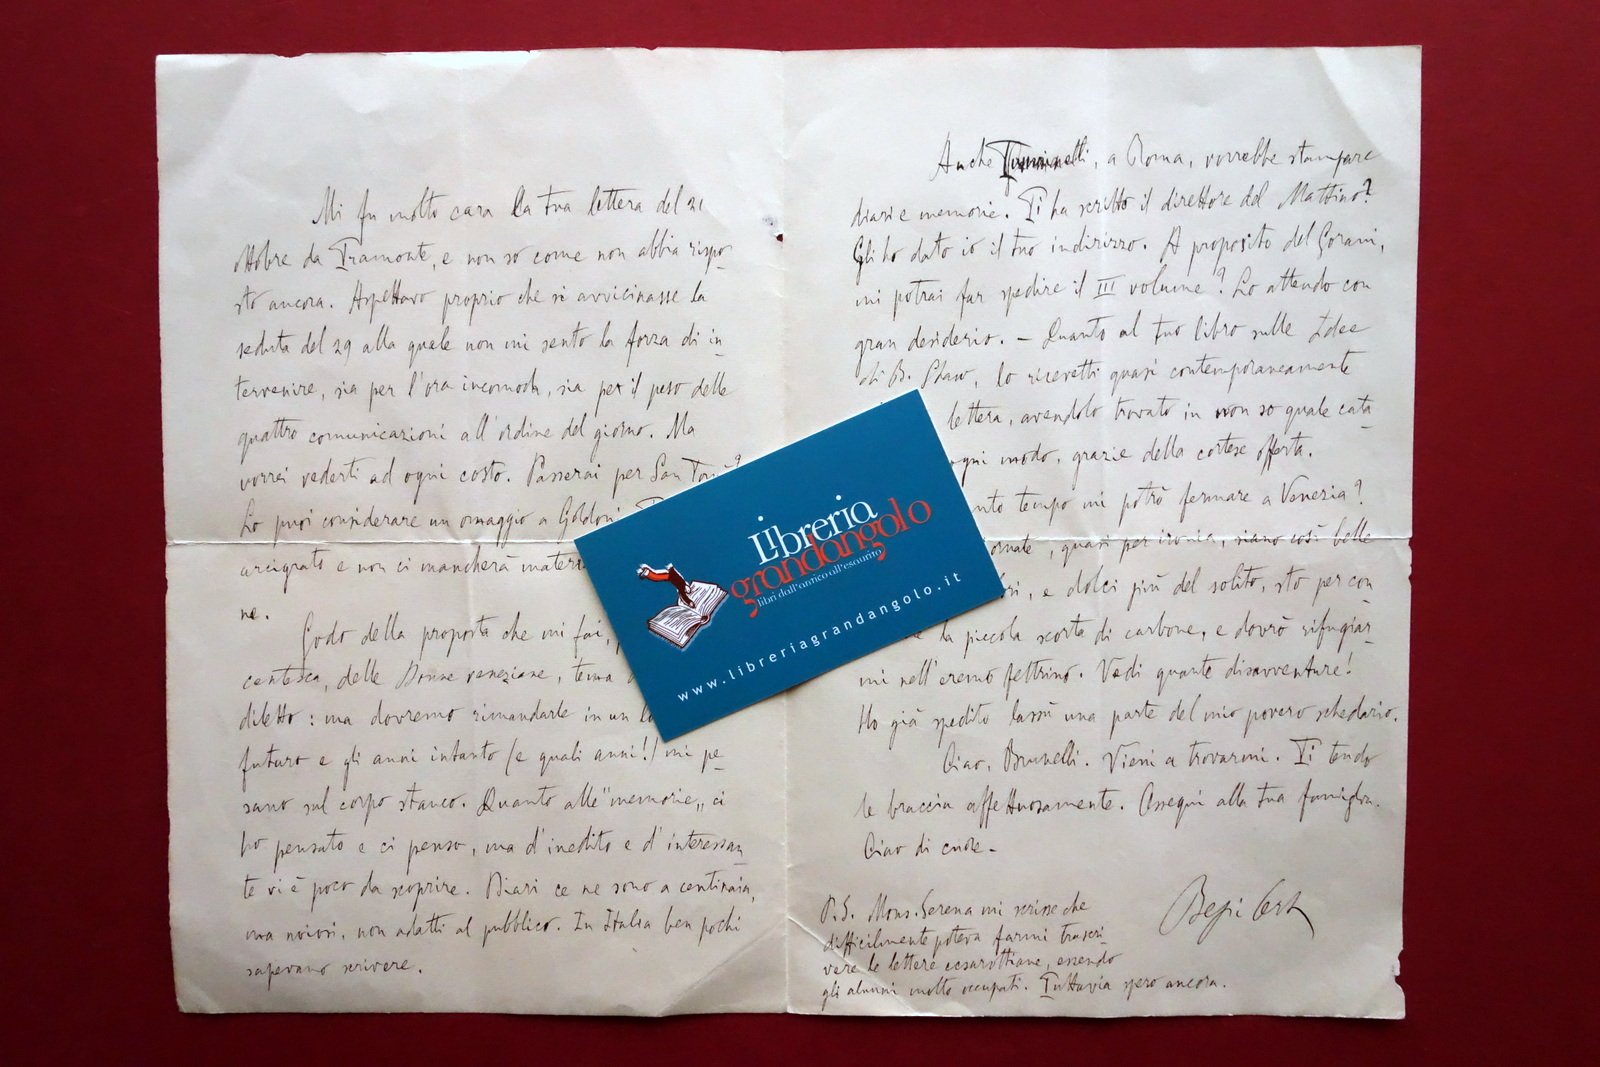 Mi fu molto cara la tua lettera del 21
ottobre da Tramonte, e non so come non abbia rispo-
sto ancora. Aspettavo proprio che si avvicinasse la
seduta del 29 alla quale non mi sento la forza di in-
tervenire, sia per l'ora incomoda, sia per il peso delle
quattro comunicazioni all'ordine del giorno. Ma
vorrei vederti ad ogni costo. Passerai per San
Lo puoi considerare un omaggio a Goldoni.
arcigrato e non ci mancherà
ne.
Godo della proposta che mi fai,
delle Donne veneziane, tema
diletto: ma dovremo rimandarle in un
futuro e gli anni intanto (e quali anni!) mi pe-
sano sul corpo stanco. Quanto alle "memorie„ ci
ho pensato e ci penso, ma d'inedito e d'interessan-
te vi è poco da scoprire. Diari ce ne sono a centinaia,
ma noiosi, non adatti al pubblico. In Italia ben pochi
sapevano scrivere.
Anche Tumminelli, a Roma, vorrebbe stampare
diari e memorie. Ti ha scritto il direttore del Mattino?
Gli ho dato io il tuo indirizzo. A proposito del Gorani,
mi potrai far spedire il III volume? Lo attendo con
gran desiderio. — Quanto al tuo libro sulle Idee
di B. Shaw, lo ricevetti quasi contemporaneamente
lettera, avendolo trovato in non so quale cata-
ogni modo, grazie della cortese offerta.
tempo mi potrò fermare a Venezia?
quasi per ironia, siano così belle
e dolci più del solito, sto per con
la piccola scorta di carbone, e dovrò rifugiar-
mi nell'eremo feltrino. Vedi quante disavventure!
Ho già spedito lassù una parte del mio povero schedario.
Ciao, Brunelli. Vieni a trovarmi. Ti tendo
le braccia affettuosamente. Ossequi alla tua famiglia.
Ciao di cuore -
Bepi
P.S. Mons. Serena mi scrisse che
difficilmente poteva farmi trascri-
vere le lettere cesarottiane, essendo
gli alunni molto occupati. Tuttavia spero ancora.
Libreria
grandangolo
libri dall'antico all'esaurito
www.libreriagrandangolo.it